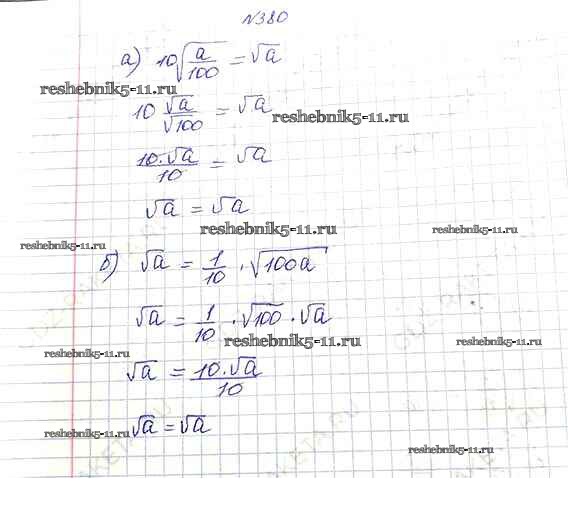 №380
а) 10√(a/100) = √a
reshebnik5-11.ru
10 √a/√100 = √a
reshebnik5-11.ru
10·√a/10 = √a
√a = √a
reshebnik5-11.ru
reshebnik5-11.ru
reshebnik5-11.ru
б) √a = 1/10 · √(100a)
√a = 1/10 · √100 · √a
reshebnik5-11.ru
reshebnik5-11.ru
reshebnik5-11.ru
√a = 10·√a/10
√a = √a
reshebnik5-11.ru
reshebnik5-11.ru